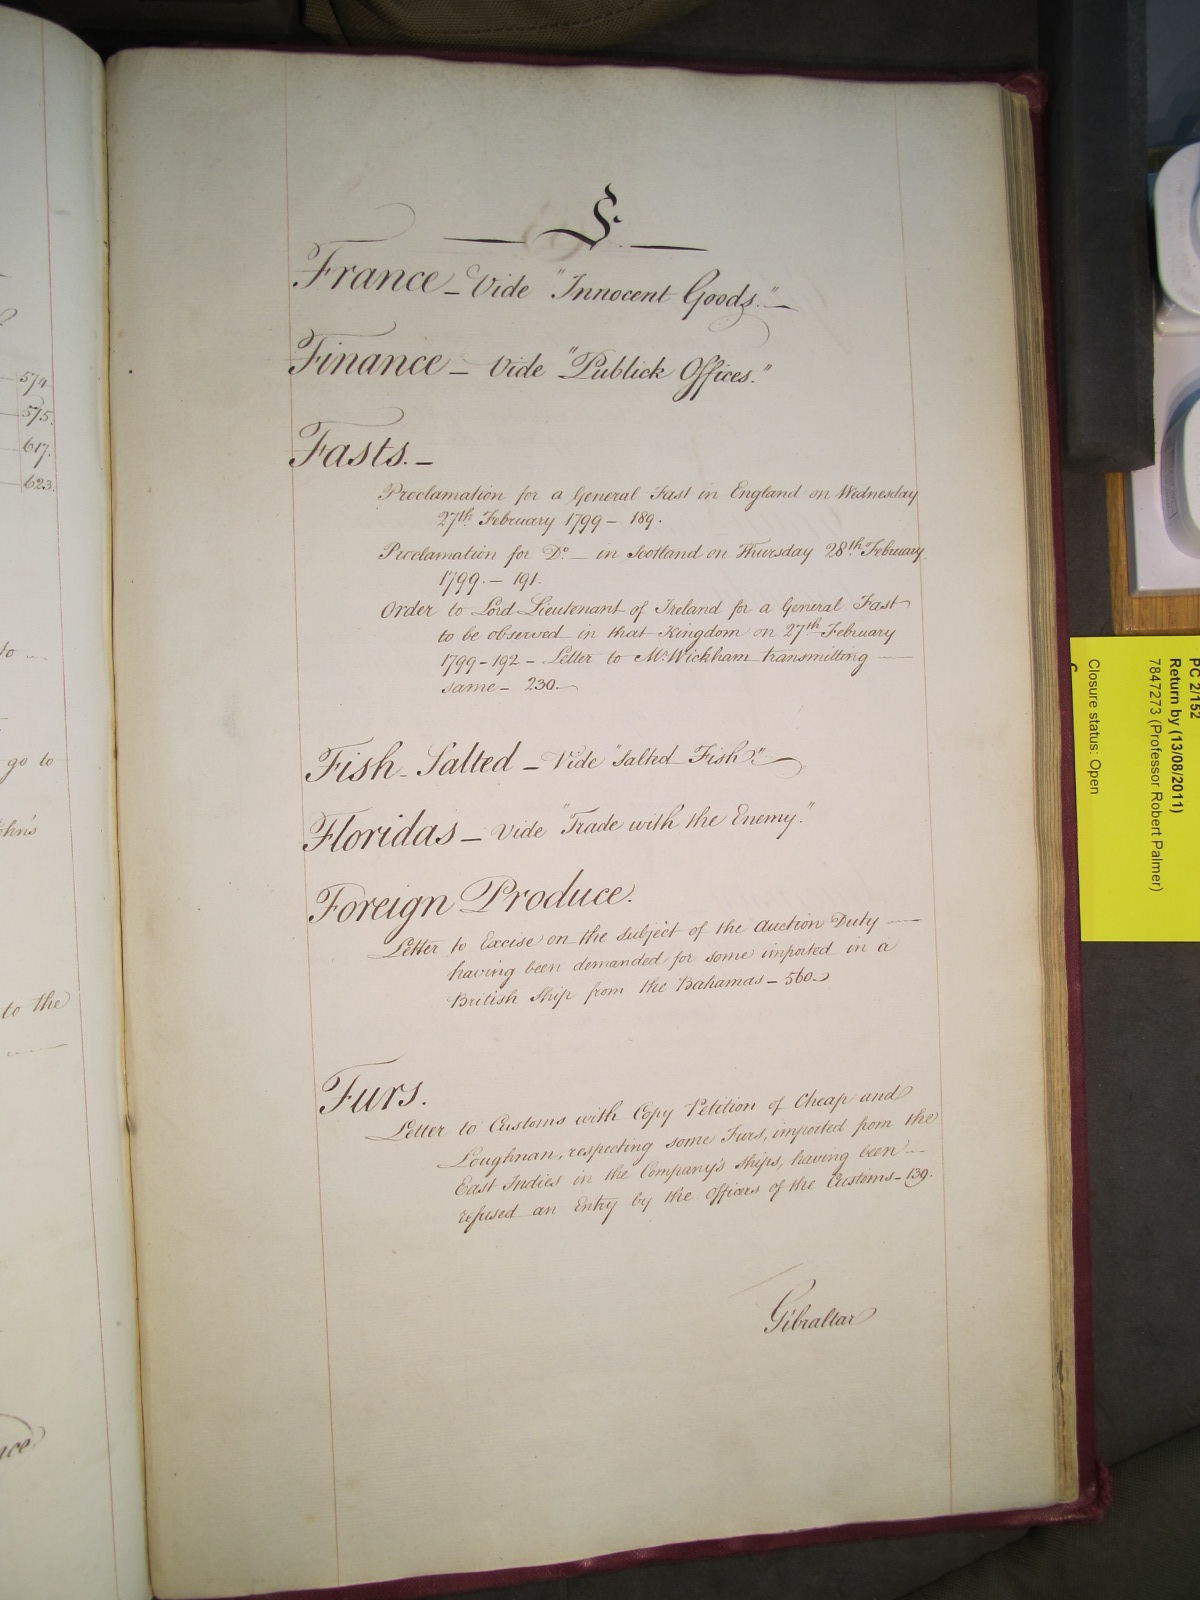 574
575.
617.
623.
to
go to
ohn's
to the
F.
France – Vide "Innocent Goods."
Finance – Vide "Publick Offices."
Fasts. –
Proclamation for a General Fast in England on Wednesday
27th February 1799 – 189.
Proclamation for Do. – in Scotland on Thursday 28th February
1799. – 191.
Order to Lord Lieutenant of Ireland for a General Fast
to be observed in that Kingdom on 27th February
1799 - 192 – Letter to Mr. Wickham transmitting
same – 230.
Fish - Salted – Vide "Salted Fish."
Floridas – Vide "Trade with the Enemy."
Foreign Produce.
Letter to Excise on the subject of the Auction Duty
having been demanded for some imported in a
British Ship from the Bahamas – 560.
Furs.
Letter to Customs with Copy Petition of Cheap and
Loughnan, respecting some Furs, imported from the
East Indies in the Company's Ships, having been
refused an Entry by the Officers of the Customs – 139.
Gibraltar
PC 2/152
Return by (13/08/2011)
7847273 (Professor Robert Palmer)
Closure status: Open